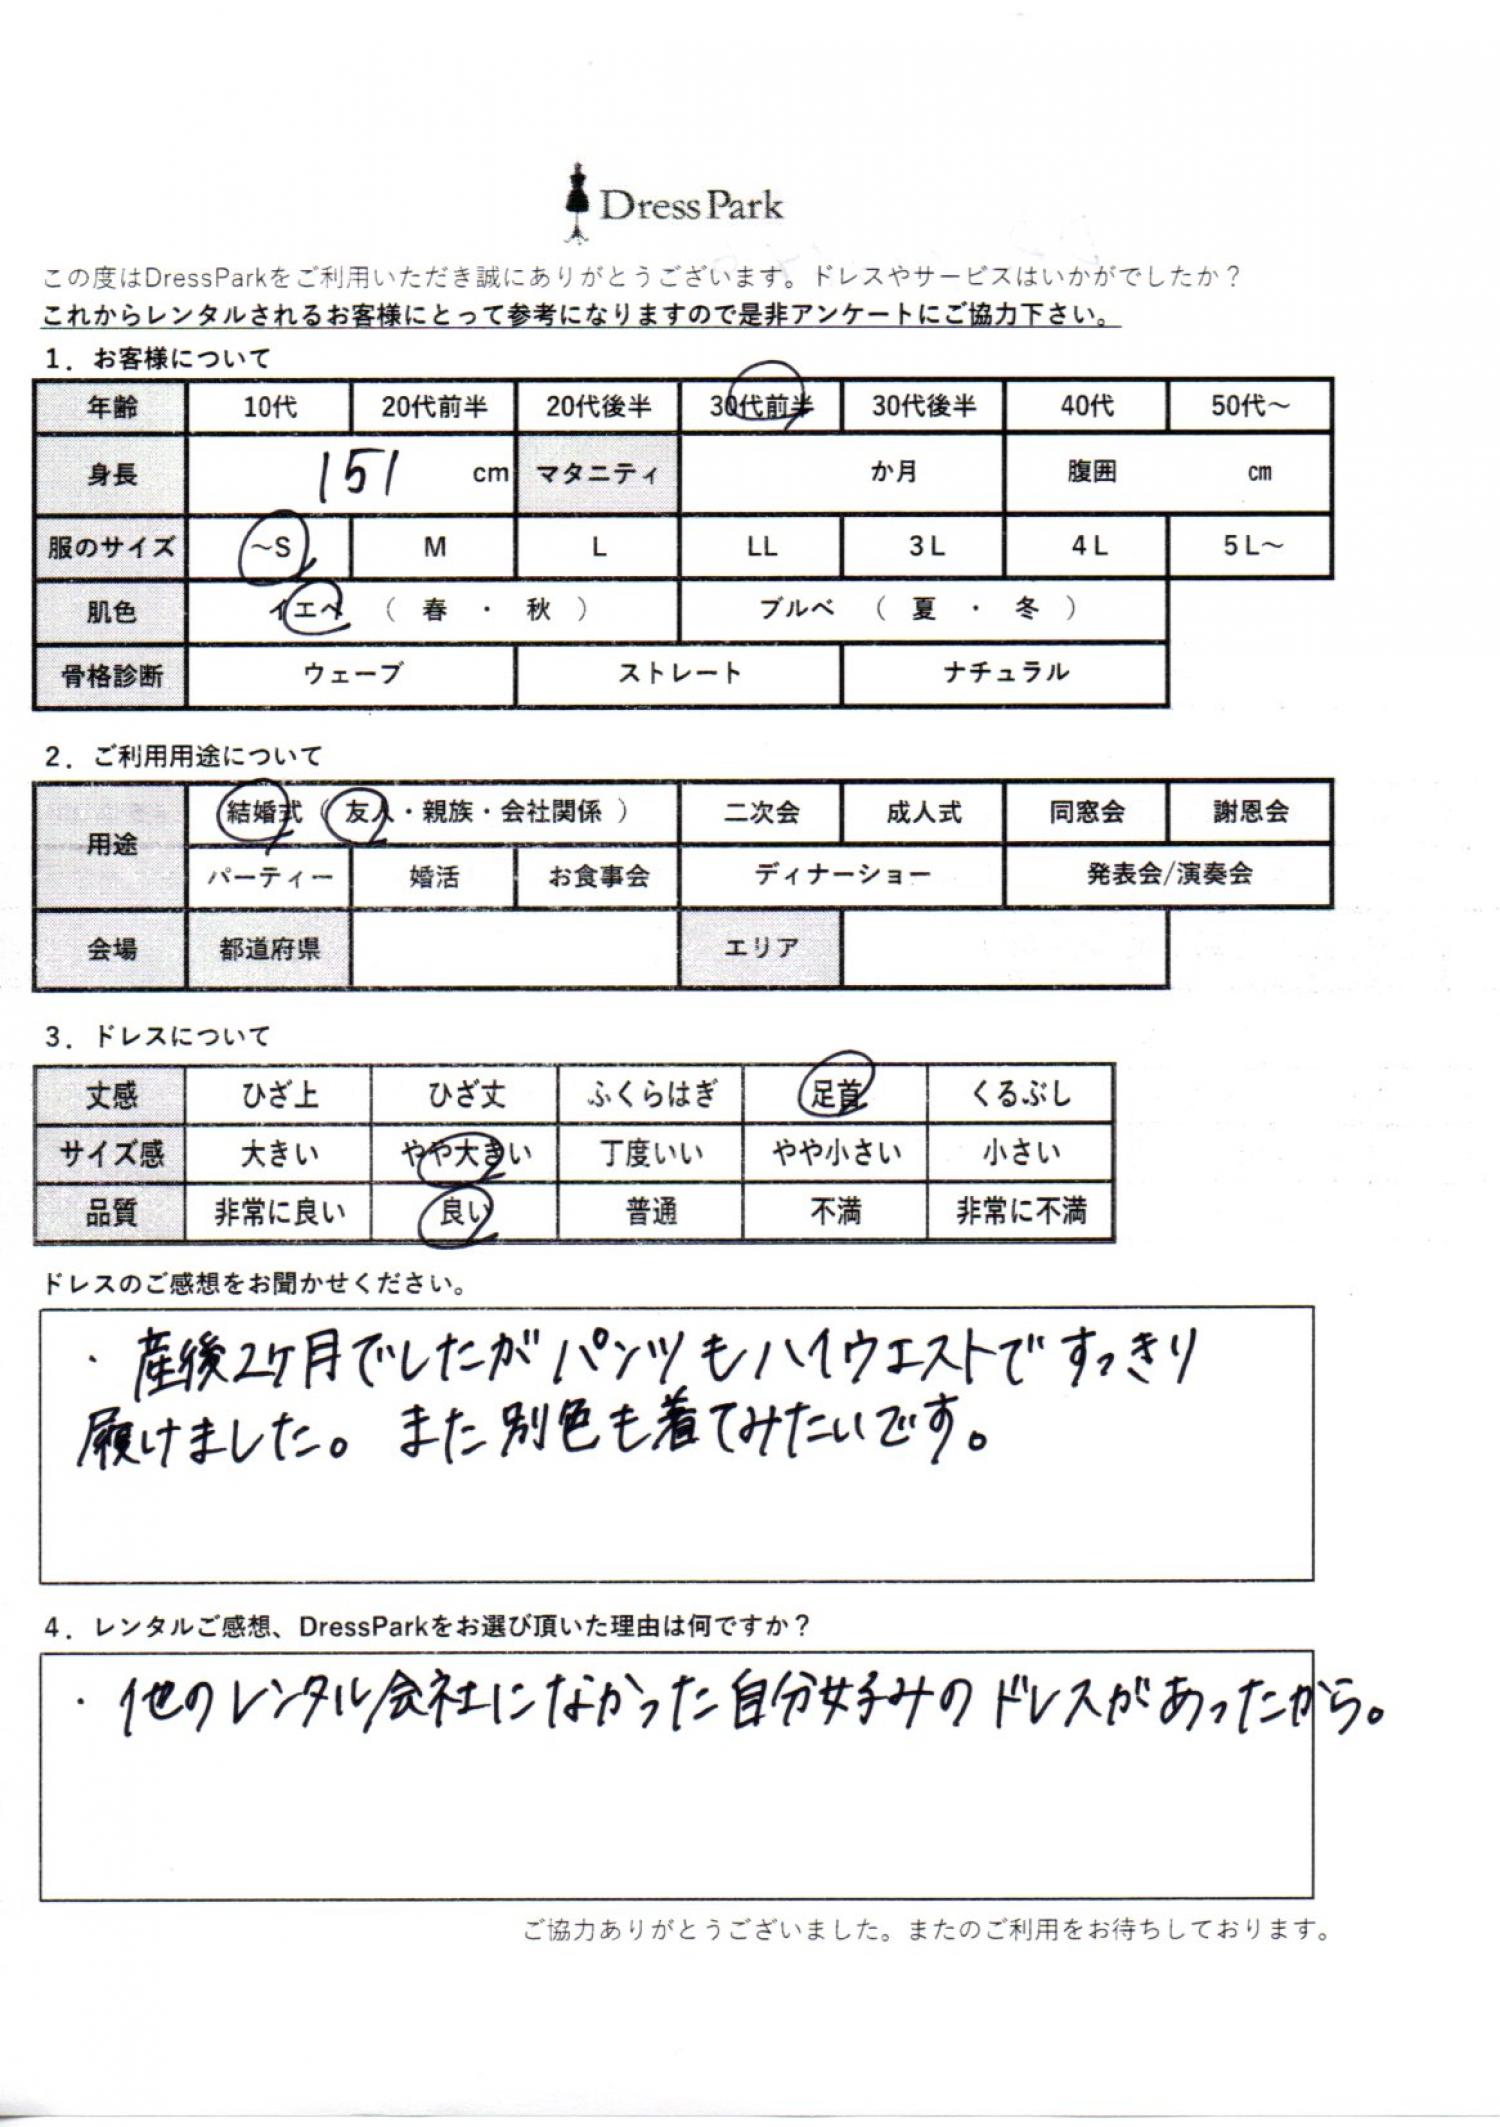 DressPark
この度はDressParkをご利用いただき誠にありがとうございます。ドレスやサービスはいかがでしたか？
これからレンタルされるお客様にとって参考になりますので是非アンケートにご協力下さい。
1．お客様について
年齢 10代 20代前半 20代後半 30代前半 30代後半 40代 50代～
身長 151 cm マタニティ か月 腹囲 cm
服のサイズ ～S M L LL 3L 4L 5L～
肌色 イエベ （ 春 ・ 秋 ） ブルベ （ 夏 ・ 冬 ）
骨格診断 ウェーブ ストレート ナチュラル
2．ご利用用途について
用途 結婚式（ 友人・親族・会社関係 ） 二次会 成人式 同窓会 謝恩会
パーティー 婚活 お食事会 ディナーショー 発表会/演奏会
会場 都道府県 エリア
3．ドレスについて
丈感 ひざ上 ひざ丈 ふくらはぎ 足首 くるぶし
サイズ感 大きい やや大きい 丁度いい やや小さい 小さい
品質 非常に良い 良い 普通 不満 非常に不満
ドレスのご感想をお聞かせください。
・産後2ヶ月でしたがパンツもハイウエストですっきり
履けました。また別色も着てみたいです。
4．レンタルご感想、DressParkをお選び頂いた理由は何ですか？
・他のレンタル会社になかった自分好みのドレスがあったから。
ご協力ありがとうございました。またのご利用をお待ちしております。